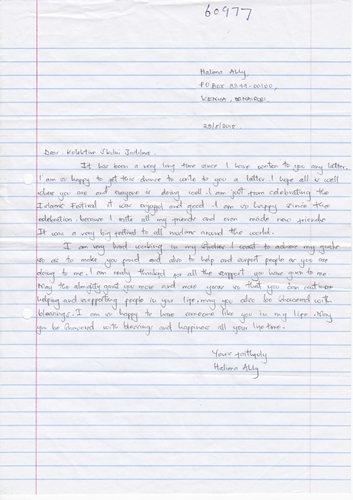 60977
Halima Ably,
P.O BOX
KENYA
Dear Kolektiv
It has been a very long time since I have written to you any letter.
I am so happy to get this chance to write to you a letter. I hope all is well
where you are and everyone is doing well. I am just from celebrating the
Islamic Festival it was enjoyed and good. I am so happy since the
celebration because I invite all my friends and even made new friends
It was a very big festival to all muslims around the world.
I am very hard working in my studies I want to achieve my goals
so as to make you proud and also to help and support people as you are
doing to me. I am really thankful for all the support you have given to me.
May the almighty grant you more and more years so that you can
helping and supporting people in your life. may you also be showered with
blessings. I am so happy to have someone like you in my life. May
you be showered with blessings and happiness all your lifetime.
Yours faithfully
Halima Ably